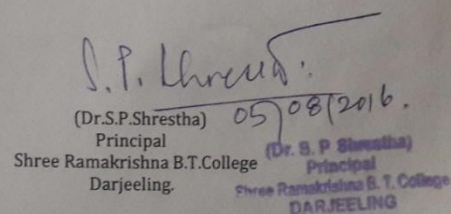 S.P. Shrestha
05/08/2016.
(Dr.S.P.Shrestha)
Principal
Shree Ramakrishna B.T.College
Darjeeling.
(Dr. S. P Shrestha)
Principal
Shree Ramakrishna B. T. College
DARJEELING